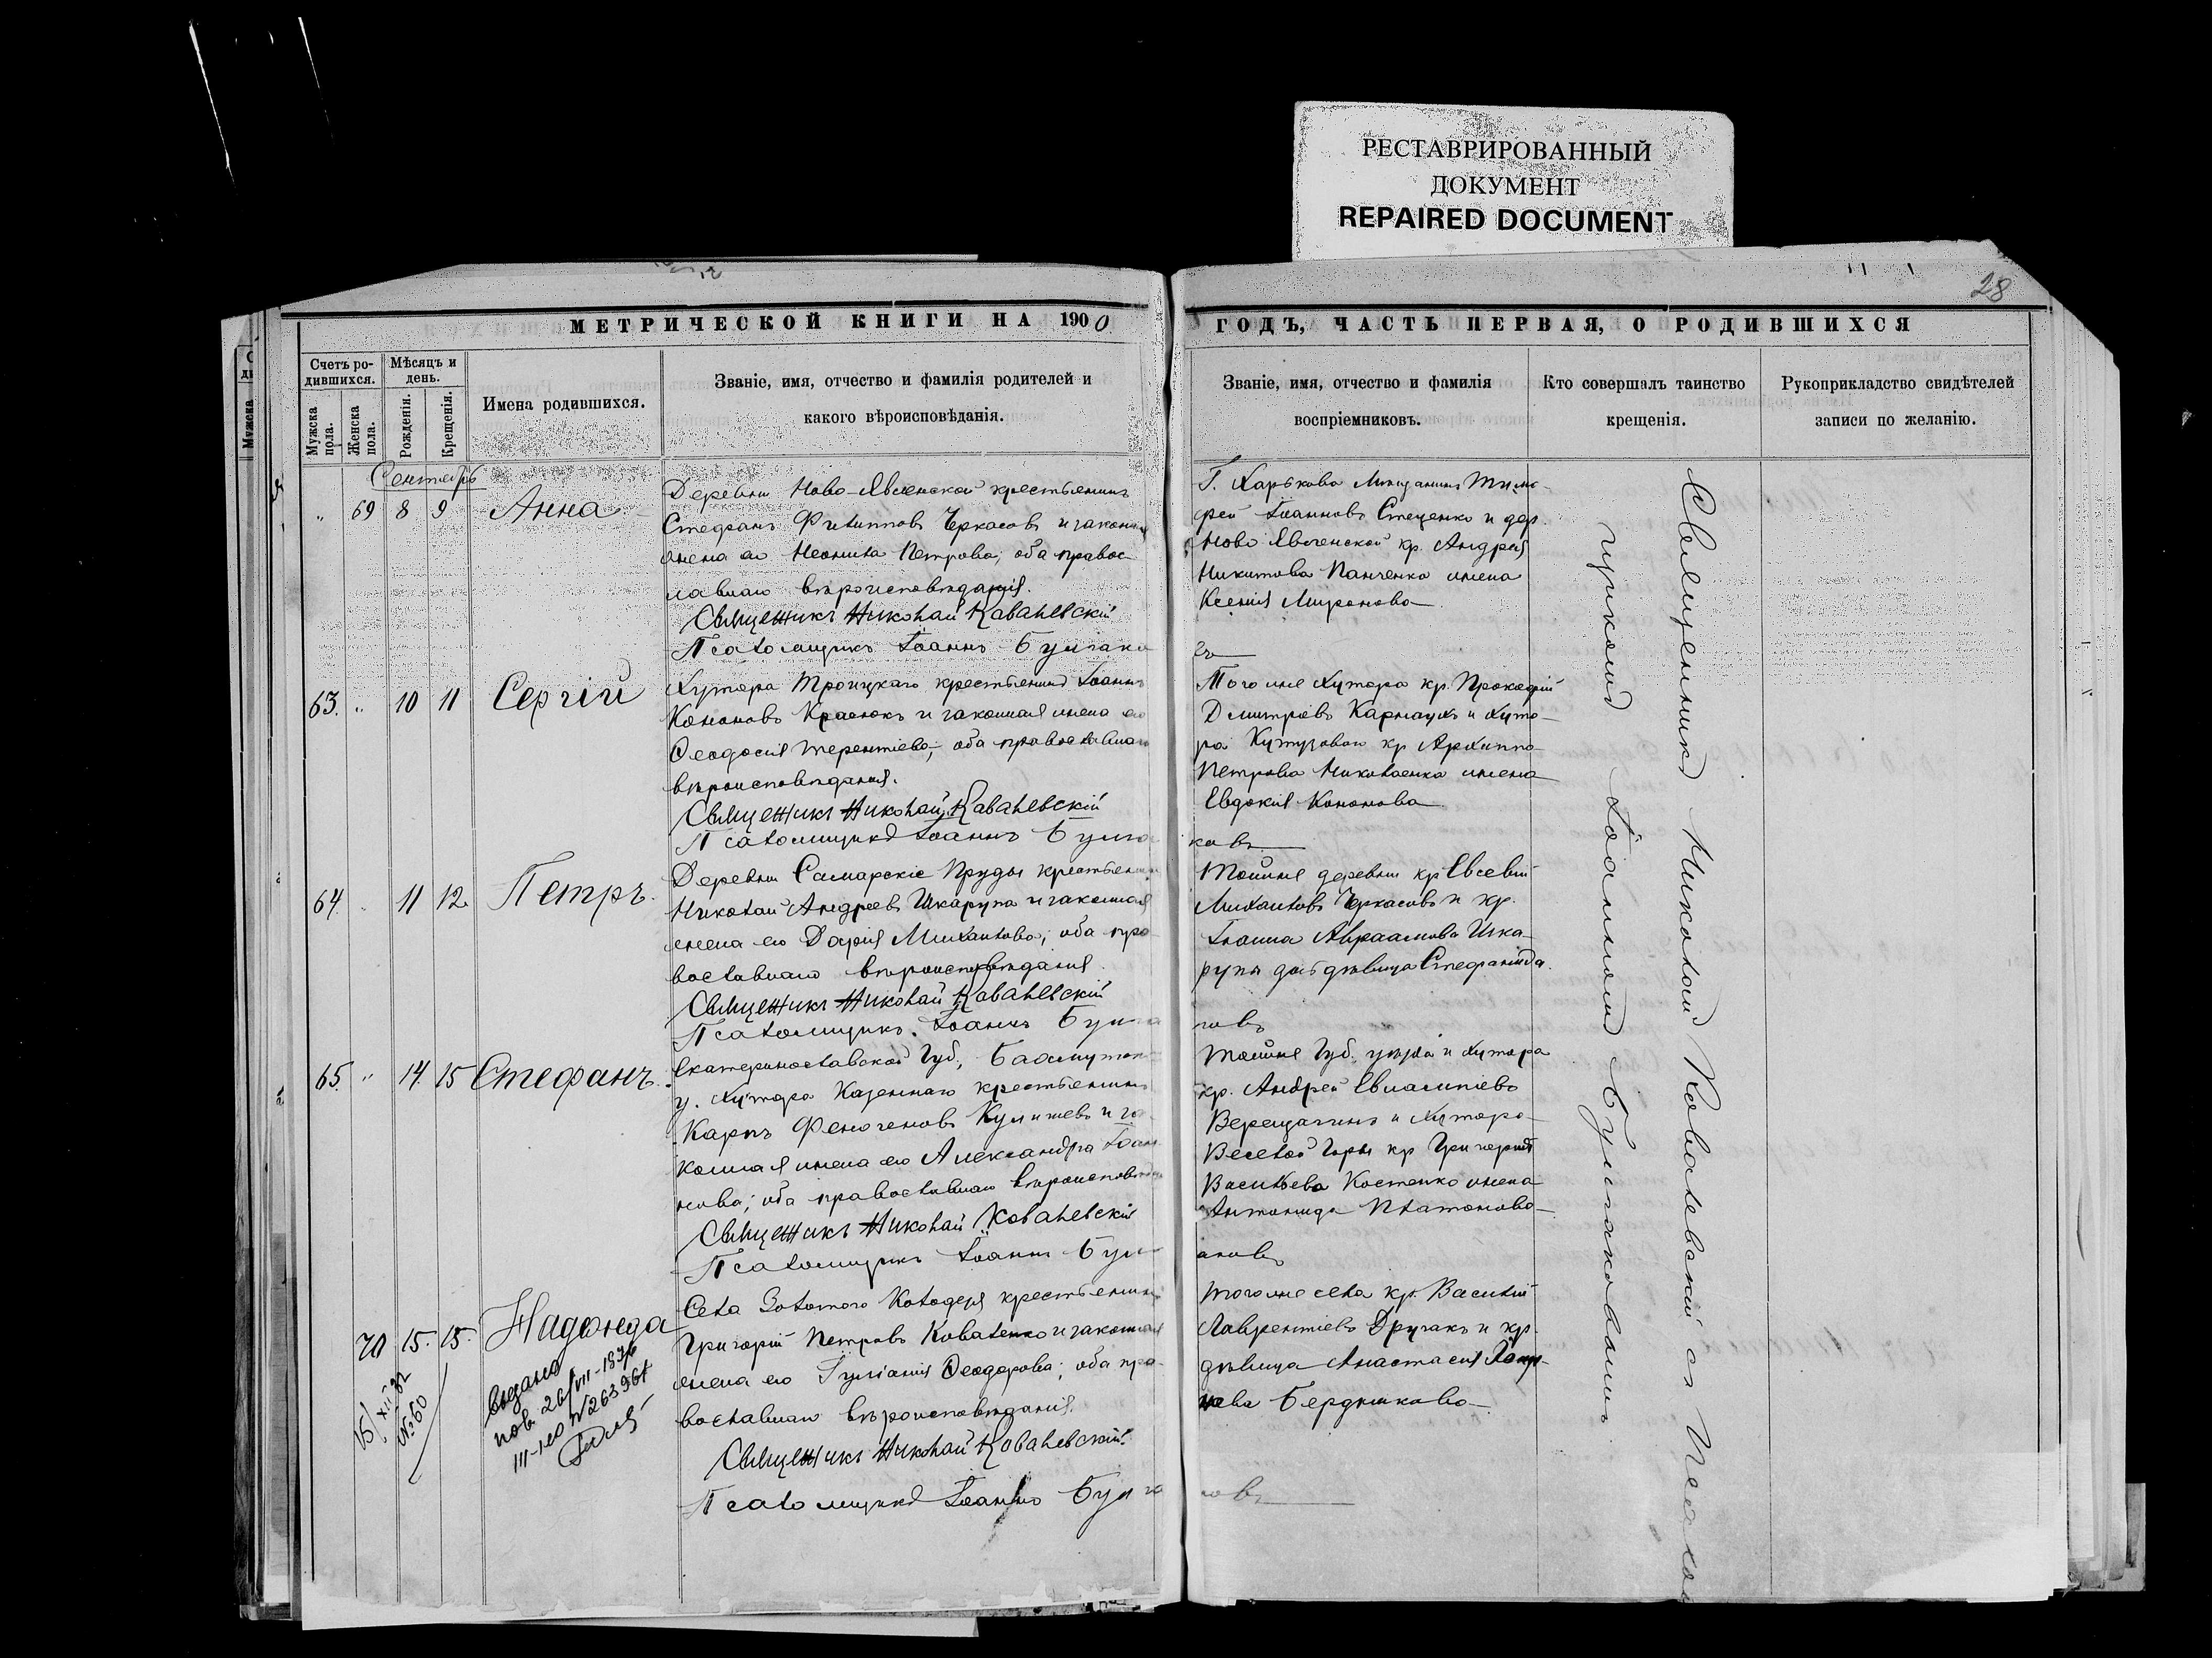 РЕСТАВРИРОВАННЫЙ
ДОКУМЕНТ
REPAIRED DOCUMENT
28
МЕТРИЧЕСКОЙ КНИГИ НА 1900
ГОДЪ, ЧАСТЬ ПЕРВАЯ, О РОДИВШИХСЯ
Счетъ ро-
дившихся.
Мужска
пола.
Женска
пола.
Мѣсяцъ и
день.
Рожденія.
Крещенія.
Имена родившихся.
Званіе, имя, отчество и фамилія родителей и
какого вѣроисповѣданія.
Званіе, имя, отчество и фамилія
воспріемниковъ.
Кто совершалъ таинство
крещенія.
Рукоприкладство свидѣтелей
записи по желанію.
Сентябрь
„ 69 8 9 Анна
Деревни Ново-Явленской крестьянинъ
Стефанъ Филипповъ Черкасовъ и законная
жена его Неонила Петрова; оба правос-
лавнаго вѣроисповѣданія.
Священникъ Николай Ковалевскій
Псаломщикъ Іоаннъ Булгако
Г. Харькова Мѣщанинъ Тимо-
фей Іоанновъ Стеценко и дер.
Ново Явленской кр. Андрея
Никитова Панченко жена
Ксенія Миронова
въ
63. „ 10 11 Сергій
Хутора Троицкаго крестьянинъ Іоаннъ
Кононовъ Краснокъ и законная жена его
Ѳеодосія Терентіева; оба православнаго
вѣроисповѣданія.
Священникъ Николай Ковалевскій
Псаломщикъ Іоаннъ Булга
Того же хутора кр. Прокофій
Дмитріевъ Карнаухъ и хуто-
ра Кутузоваго кр. Архиппа
Петрова Николаенка жена
Евдокія Кононова
ковъ
64. „ 11 12. Петръ.
Деревни Самарскіе Пруды крестьянинъ
Николай Андреевъ Шкарупа и законная
жена его Дарія Михаилова; оба пра-
вославнаго вѣроисповѣданія.
Священникъ Николай Ковалевскій
Псаломщикъ Іоаннъ Булга
Той же деревни кр. Евсевій
Михаиловъ Черкасовъ и кр.
Іоанна Авраамова Шка-
рупы дочь дѣвица Стефанида.
ковъ
65. „ 14. 15 Стефанъ.
Екатеринославской Губ., Бахмутск.
у. хутора Казеннаго крестьянинъ
Карпъ Феногеновъ Кулишевъ и за-
конная жена его Александра Іоан-
нова; оба православнаго вѣроисповѣданія
Священникъ Николай Ковалевскій
Псаломщикъ Іоаннъ Булг
Той же Губ., уѣзда и хутора
кр. Андрей Евлампіевъ
Верещагинъ и хутора
Веселой Горы кр. Григорія
Васильева Костенко жена
Антонида Платонова
аковъ
70 15. 15. Надежда
Села Золотого Колодезя крестьянинъ
Григорій Петровъ Коваленко и законная
жена его Іуліанія Ѳеодорова; оба пра-
вославнаго вѣроисповѣданія.
Священникъ Николай Ковалевскій.
Псаломщикъ Іоаннъ Булга
Того же села кр. Василій
Лаврентіевъ Дручакъ и кр.
дѣвица Анастасія
Бердникова
ковъ
15/XII 32
№60
Выдано
пов. 26/VII-1936
III-ЕО №263961
Священникъ Николай Ковалевскій съ Псалом
щикомъ Іоанномъ Булгаковымъ